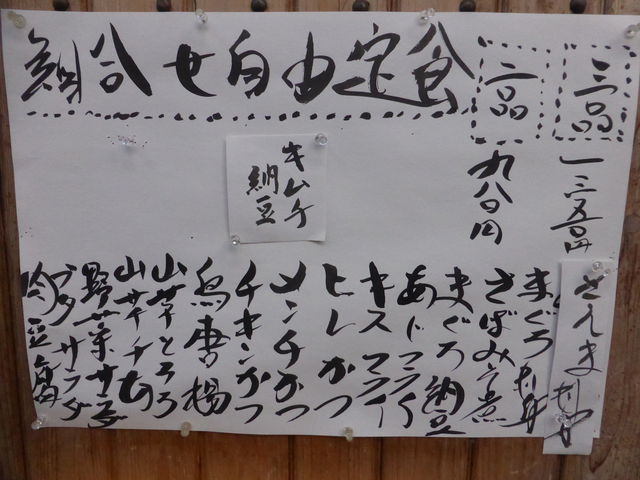 組合せ自由定食
三品
一三五〇円
二品
九八〇円
キムチ
納豆
さんま刺身
まぐろ刺身
さばみそ煮
まぐろ納豆
あじフライ
キスフライ
ヒレかつ
メンチかつ
チキンかつ
鳥唐揚
山芋とろろ
山芋千切
野菜サラダ
サラダ
肉豆腐